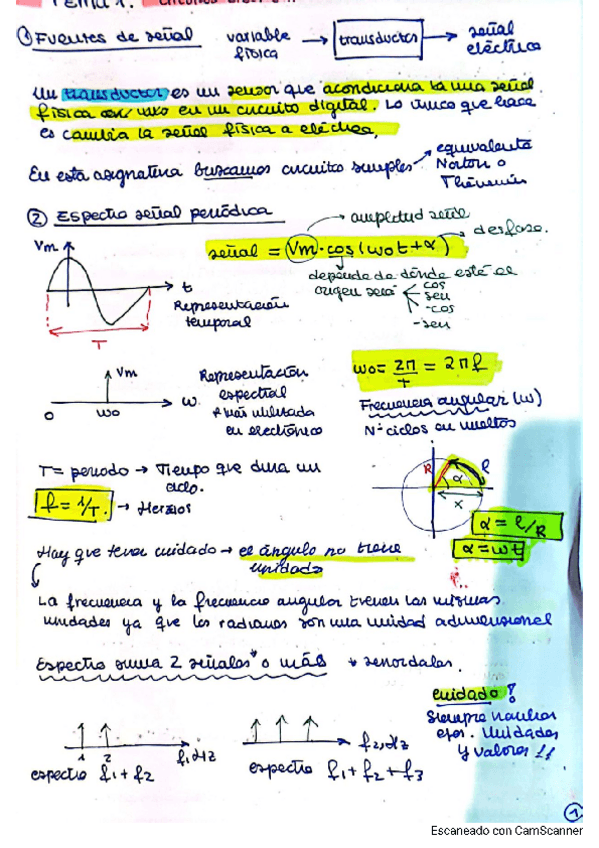 Tema 1.
① Fuentes de señal variable física → transductor → señal eléctrica
Un transductor es un sensor que acondiciona la una señal
física en/ uso en un circuito digital. Lo único que hace
es cambia la señal física a eléctrica,
En esta asignatura buscamos circuito simples → equivalente
Norton o
Thévenin
② Espectro señal periódica
→ amplitud señal
→ desfase.
señal = Vm·cos(ωot+α)
Vm
t
depende de dónde está el
origen será
cos
sen
-cos
-sen
Representación
temporal
T
Vm
0 ωo ω
Representación
espectral
utilizada
en electrónica
ωo = 2π/T = 2πf
Frecuencia angular (ω)
Nº ciclos en vueltos
T = periodo → Tiempo que dura un
ciclo.
f = 1/T. → Herzios
R α ℓ
x
α = ℓ/R
α = ωt
Hay que tener cuidado → el ángulo no tiene
unidades
La frecuencia y la frecuencia angular tienen las mismas
unidades ya que los radianes son una unidad adimensional
Espectro suma 2 señales o más senoidales.
cuidado!
Siempre nombrar
ejes. Unidades
y valores !!
1 2 f, Hz
f, Hz
espectro f1 + f2
espectro f1 + f2 + f3
1
Escaneado con CamScanner